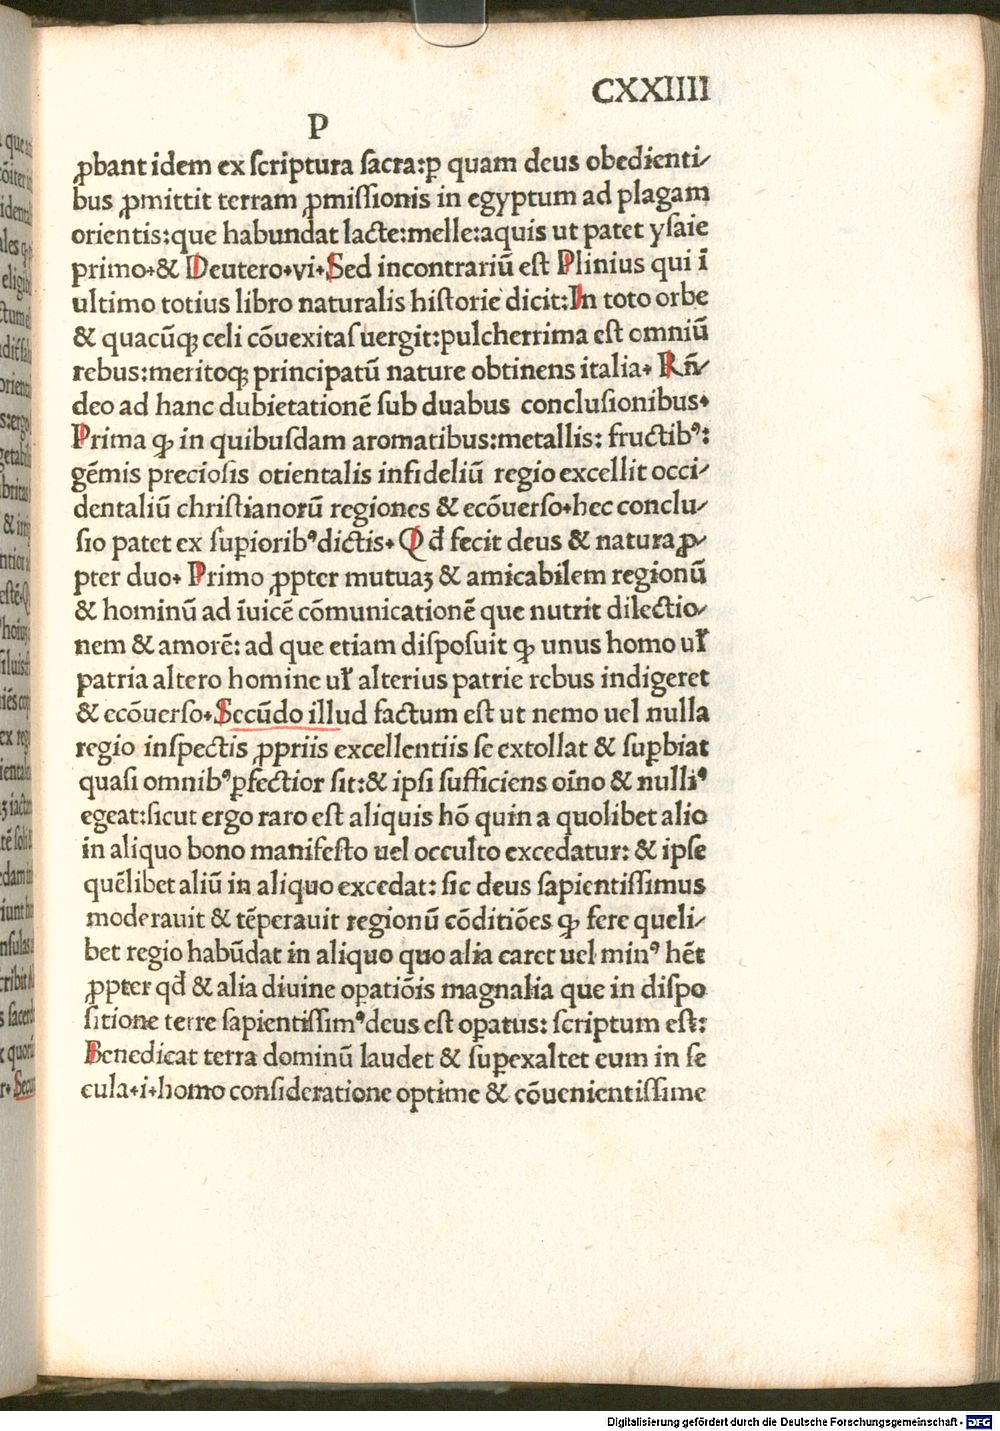 CXXIIII
P
ꝓbant idem ex ſcriptura ſacra:ꝑ quam deus obedienti⸗
bus ꝓmittit terram ꝓmiſſionis in egyptum ad plagam
orientis:que habundat lacte:melle:aquis ut patet yſaie
primo.& Deutero.vi.Sed incontrariū eſt Plinius qui ī
ultimo totius libro naturalis hiſtorie dicit:In toto orbe
& quacūqꝫ celi cōuexitaſ uergit:pulcherrima eſt omniū
rebus:meritoqꝫ principatū nature obtinens italia. Rn̄⸗
deo ad hanc dubietationē ſub duabus concluſionibus.
Prima ꝙ in quibuſdam aromatibus:metallis: fructibꝰ:
gēmis precioſis orientalis infideliū regio excellit occi⸗
dentaliū chriſtianorū regiones & ecōuerſo.hec conclu⸗
ſio patet ex ſuꝑioribꝰ dictis. Qd̄ fecit deus & natura ꝓ⸗
pter duo. Primo ꝓpter mutuaꝫ & amicabilem regionū
& hominū ad īuicē cōmunicationē que nutrit dilectio⸗
nem & amorē: ad que etiam diſpoſuit ꝙ unus homo ul̄
patria altero homine ul̄ alterius patrie rebus indigeret
& ecōuerſo.Secūdo illud factum eſt ut nemo uel nulla
regio inſpectis ꝓpriis excellentiis ſe extollat & ſuꝑbiat
quaſi omnibꝰ ꝑfectior ſit:& ipſi ſufficiens oīno & nulliꝰ
egeat:ſicut ergo raro eſt aliquis hō quin a quolibet alio
in aliquo bono manifeſto uel occulto excedatur: & ipſe
quēlibet aliū in aliquo excedat: ſic deus ſapientiſſimus
moderauit & tēperauit regionū cōditiōes ꝙ fere queli⸗
bet regio habūdat in aliquo quo alia caret uel minꝰ hēt
ꝓpter qd̄ & alia diuine oꝑatiōis magnalia que in diſpo
ſitione terre ſapientiſſimꝰ deus eſt oꝑatus: ſcriptum eſt:
Benedicat terra dominū laudet & ſuꝑexaltet eum in ſe
cula.i.homo conſideratione optime & cōuenientiſſime
Digitalisierung gefördert durch die Deutsche Forschungsgemeinschaft - DFG